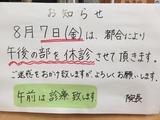 お知らせ
8月7日(金)は、都合により
午後の部を休診させて頂きます。
ご迷惑をおかけ致しますが、よろしくお願いします。
午前は診療致します
院長